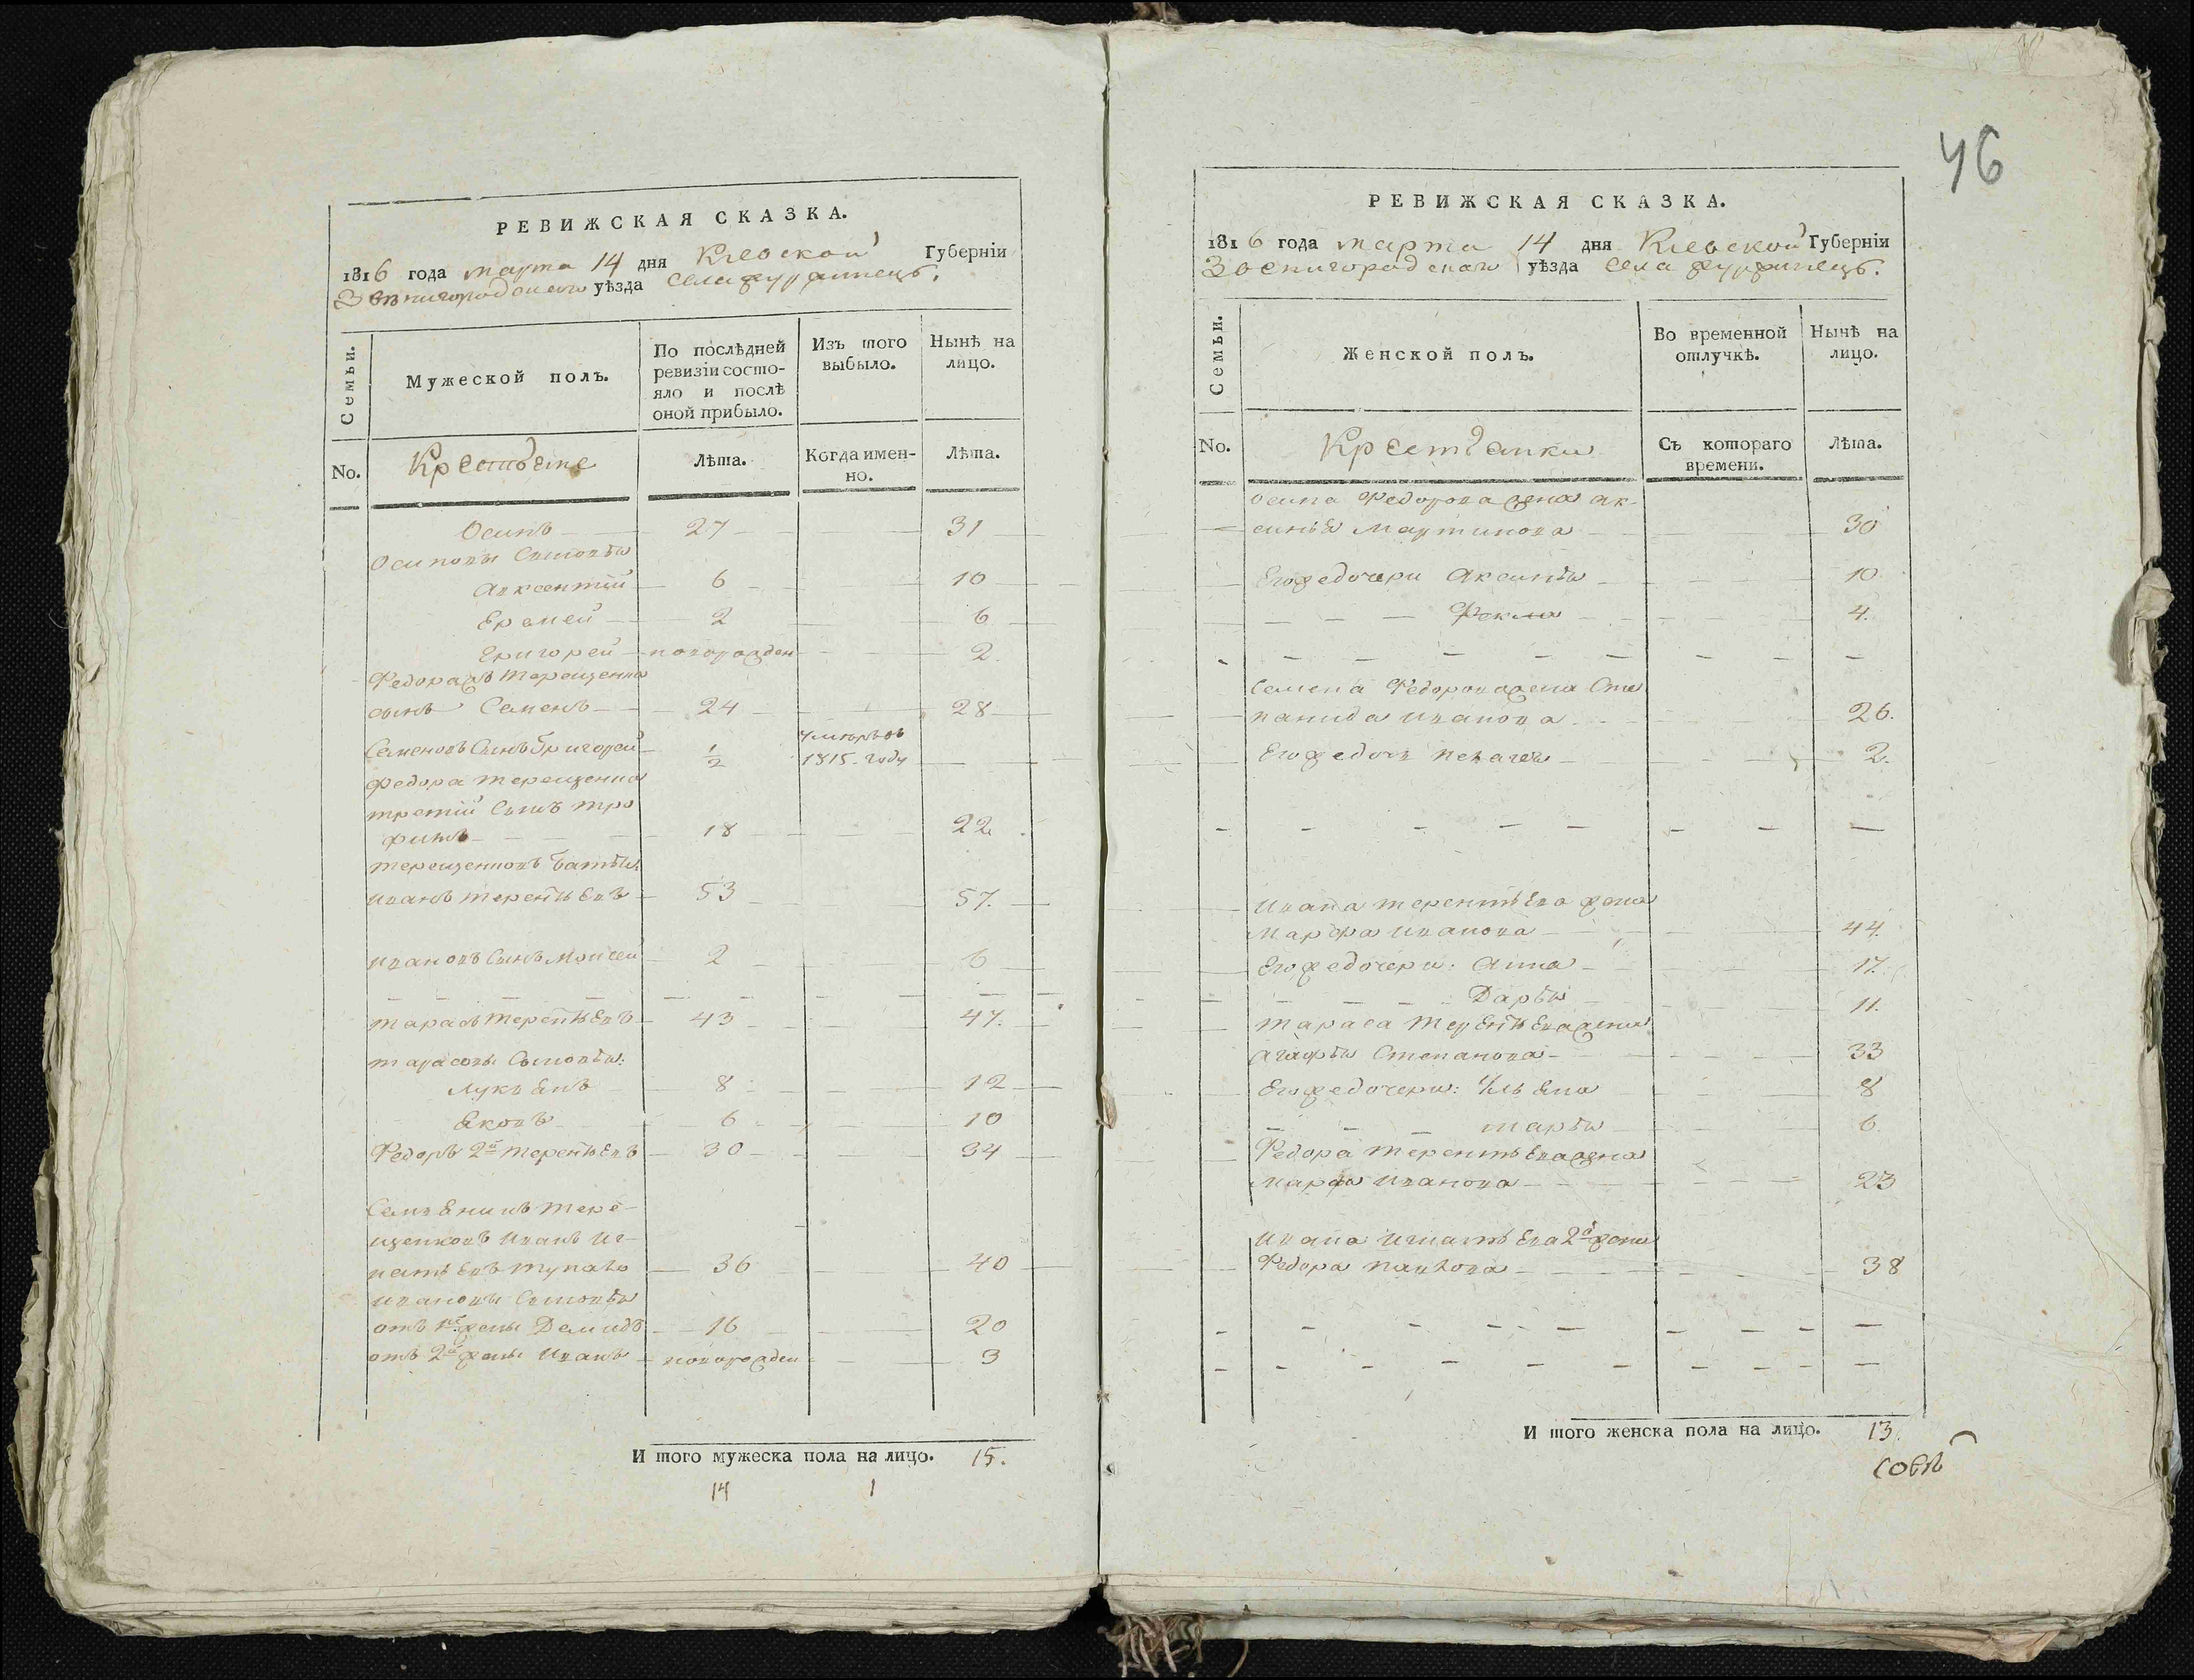 РЕВИЖСКАЯ СКАЗКА.
1816 года марта 14 дня Киевской Губерніи
Звенигородского уѣзда села
Семьи.
Мужеской полъ.
По послѣдней ревизіи состо-
яло и послѣ
оной прибыло.
Изъ того
выбыло.
Нынѣ на
лицо.
No.
Крестьяне
Лѣта.
Когда имен-
но.
Лѣта.
Осипъ 27 31
Осиповы Сыновья
Авксентій 6 10
Еремей 2 6
Григорей новорожден 2.
Федора Терещенка
сынъ Семенъ 24 28
Семеновъ Сынъ Григорей 1/2 умѣръ въ
1815. году
Федора Терещенка
третій Сынъ Тро
фимъ 18 22.
Терещенковъ
Иванъ Терентьевъ 53 57.
Ивановъ Сынъ Мойсей 2 6
Тарасъ Терентьевъ 43 47.
Тарасовы Сыновья:
Лукьянъ 8 12
Яковъ 6 10
Федоръ 2й Терентьевъ 30 34
Тере-
щенковъ Иванъ Иг-
натьевъ 36 40
Ивановы Сыновья
отъ 1й жены Демидъ 16 20
отъ 2й жены Иванъ новорожден 3
И того мужеска пола на лицо. 15.
14 1
46
РЕВИЖСКАЯ СКАЗКА.
1816 года марта 14 дня Киевской Губерніи
Звенигородского уѣзда села
Семьи.
Женской полъ.
Во временной
отлучкѣ.
Нынѣ на
лицо.
No.
Крестьянки
Съ котораго
времени.
Лѣта.
Осипа Федорова жена Ак-
синья Мартинова 30
Его же дочери Аксинья 10
Фекла 4.
Семена Федорова жена Сте
панида Иванова 26.
Его же дочь 2.
Ивана Терентьева жена
Марфа Иванова 44.
Его же дочери: Анна 17.
Дарья 11.
Тараса Терентьева жена
Агафья Степанова 33
Его же дочери: Ульяна 8
Марья 6.
Федора Терентьева жена
Марья Иванова 23
Ивана Игнатьева 2я жена
Федора Павлова 38
И того женска пола на лицо. 13.